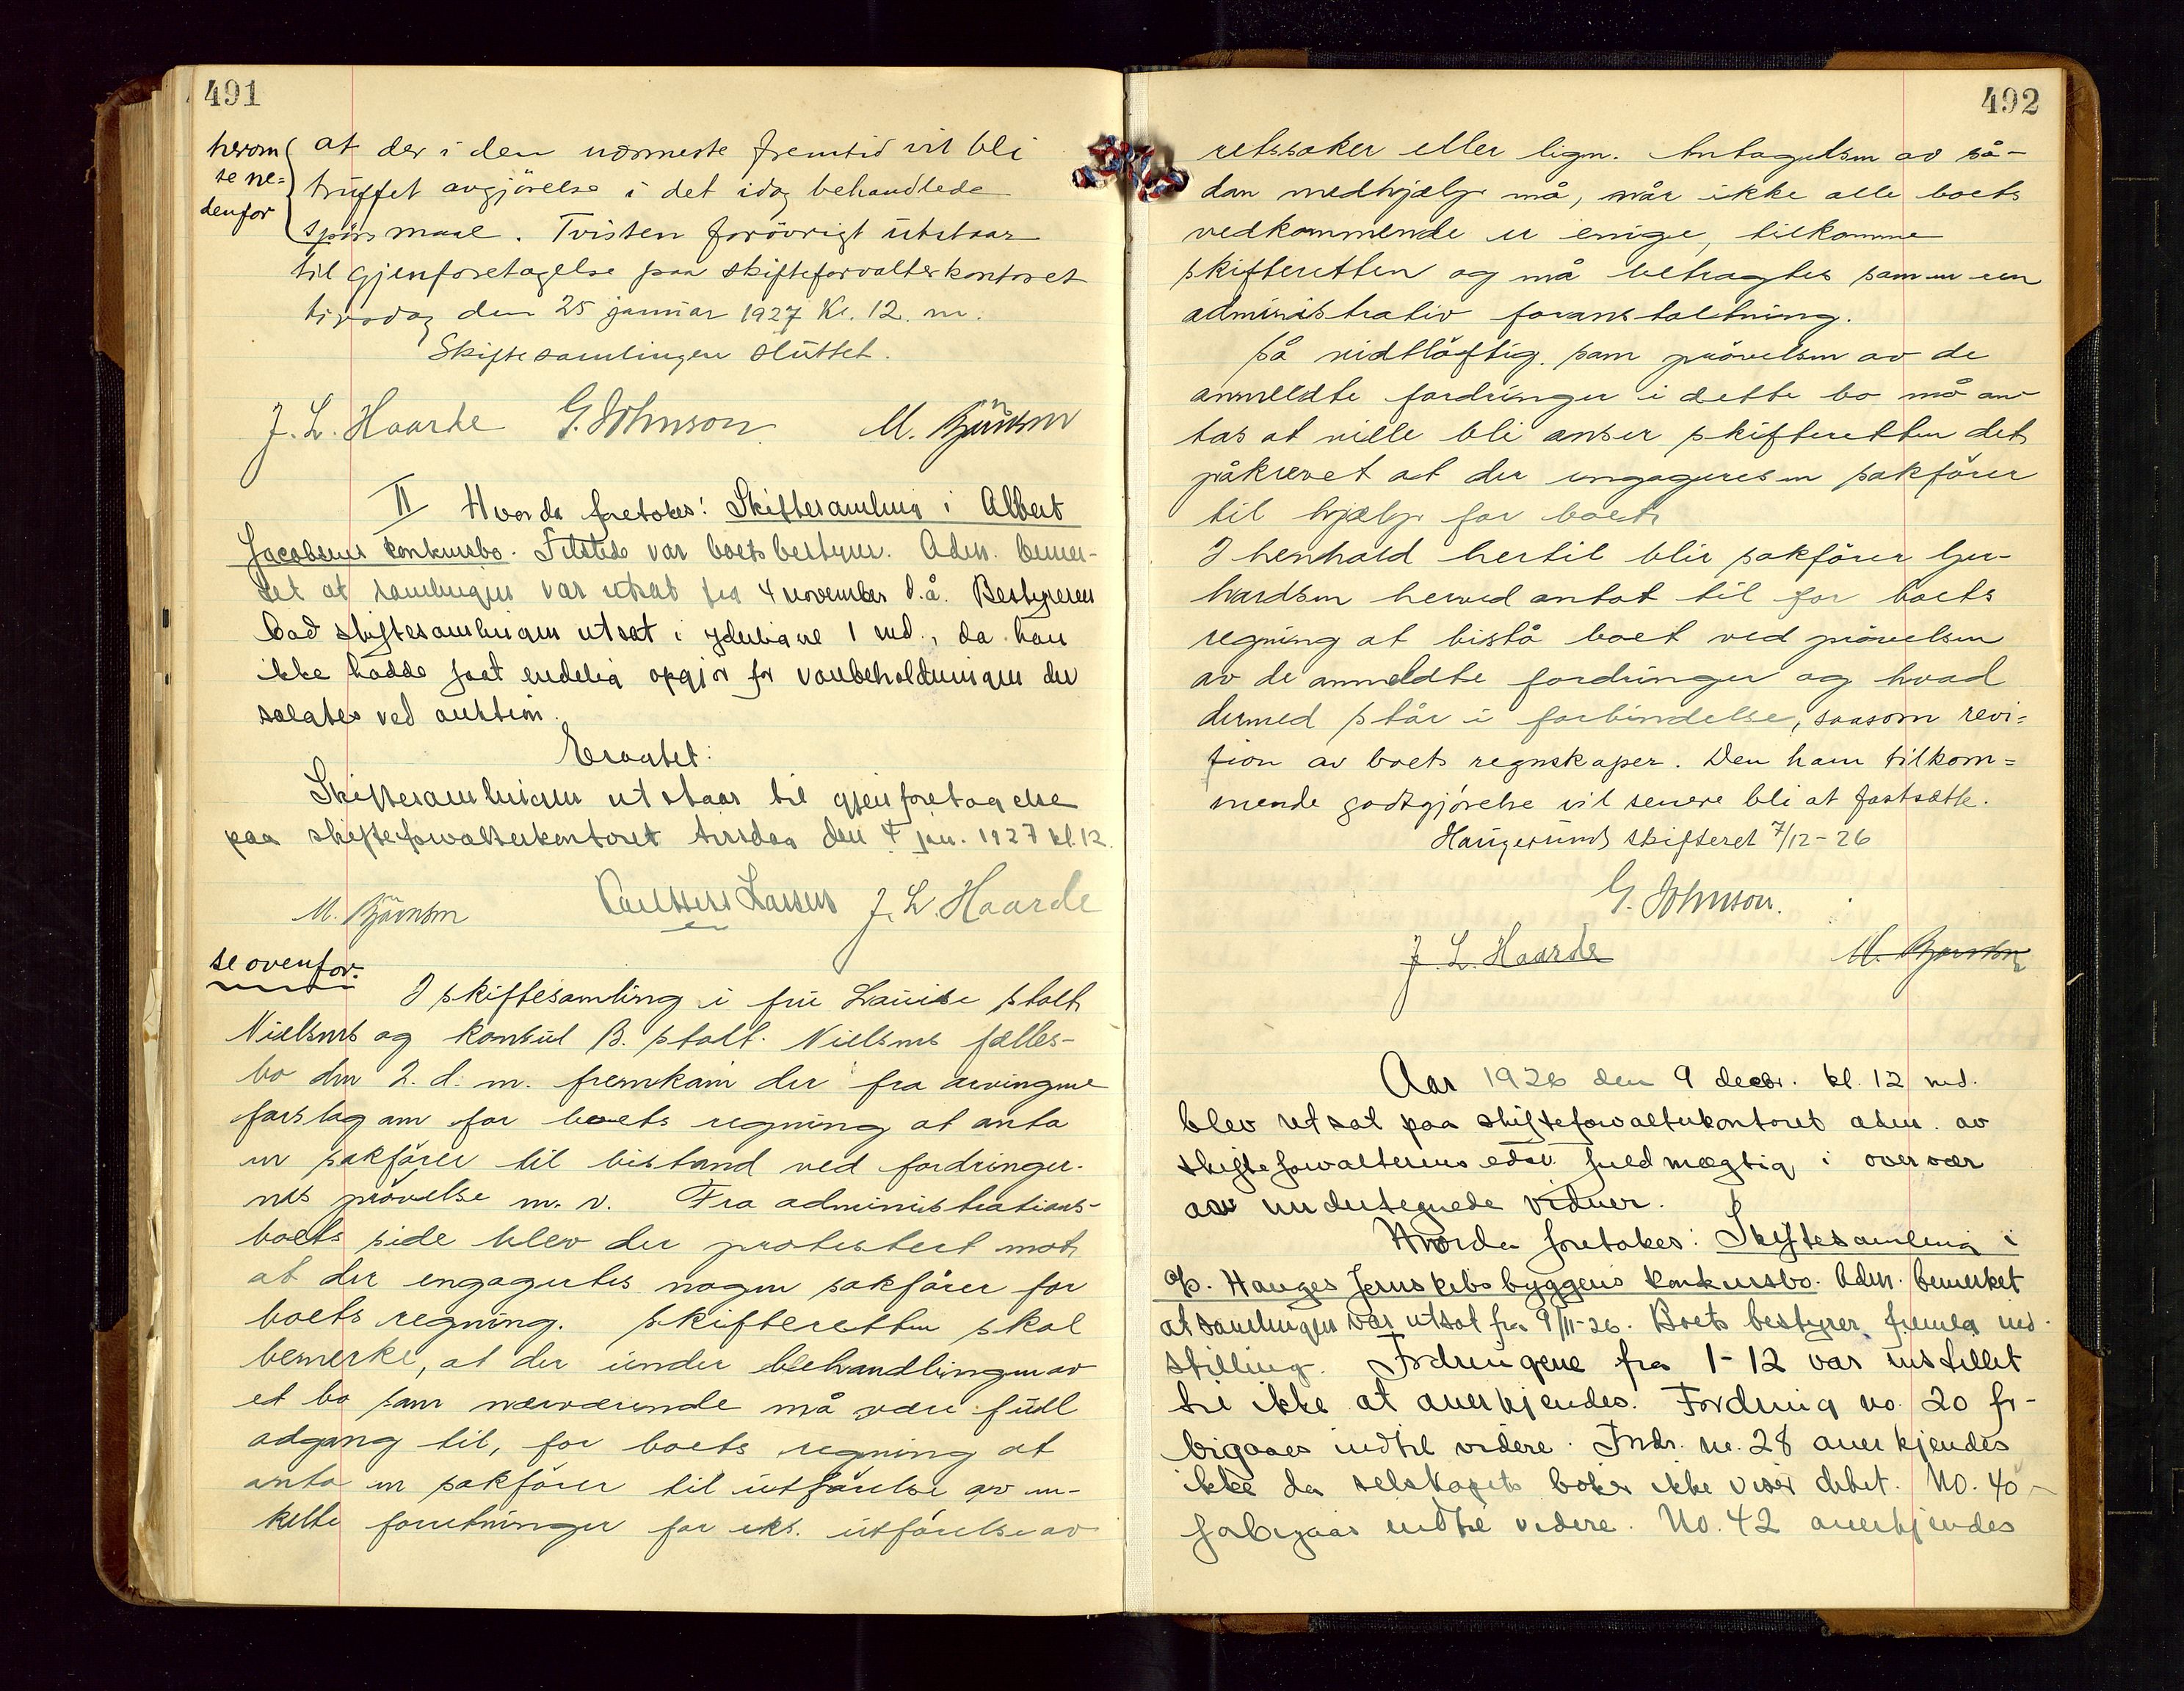 491
herom
se ne=
denfor
at der i den nærmeste fremtid vil bli
truffet avgjörelse i det idag behandlede
spörsmaal. Tvisten forövrigt utstaar
til gjenforetagelse paa skifteforvalterkontoret
tirsdag den 25 januar 1927 Kl. 12. m.
Skiftesamlingen sluttet.
J. L. Haarde G. Johnson M. Björnsen
II Hvorda foretokes: Skiftesamling i Albert
Jacobsens konkursbo. Tilstede var boets bestyrer. Adm. bemer-
ket at samlingen var utsat fra 4 november d.å. Bestyreren
bad skiftesamlingen utsat i yderligere 1 md., da han
ikke hadde faat endelig opgjör for varebeholdningen der
solgtes ved auktion.
Eragtet:
Skiftesamlingen utstaar til gjenforetagelse
paa skifteforvalterkontoret tirsdag den 4 jan. 1927 kl. 12.
M. Björnsen Larsen J. L. Haarde
se ovenfor.
I skiftesamling i fru Louise Stolt
Nielsens og konsul B. Stolt Nielsens fælles-
bo den 2. d. m. fremkom der fra arvingene
forslag om for boets regning at anta
en sakförer til bistand ved fordringer-
nes prövelse m. v. Fra administrations-
boets side blev der protestert mot
at der engagertes nogen sakförer for
boets regning. Skifteretten skal
bemerke, at der under behandlingen av
et bo som nærværende må være fuld
adgang til, for boets regning at
anta en sakförer til utförelse av en-
kelte forretninger for eks. utförelse av
492
retssaker eller lign. Antagelsen av så-
dan medhjælp må, når ikke alle boets
vedkommende er enige, tilkomme
skifteretten og må betragtes som en ren
administrativ foranstaltning.
Så vidtlöftig som prövelsen av de
anmeldte fordringer i dette bo må an-
tas at ville bli anser skifteretten det
påkrevet at der engageres en sakförer
til hjælp for boet.
I henhold hertil blir sakförer Ger-
hardsen herved antat til for boets
regning at bistå boet ved prövelsen
av de anmeldte fordringer og hvad
dermed står i forbindelse, saasom revi=
sion av boets regnskaper. Den ham tilkom=
mende godtgjörelse vil senere bli at fastsætte.
Haugesunds skifteret 7/12-26
G. Johnson.
J. L. Haarde M. Björnsen
Aar 1926 den 9 decbr. kl. 12 md.
blev ret sat paa skifteforvalterkontoret adm. av
skifteforvalterens edsv. fuldmægtig i overvær
av undertegnede vidner.
Hvorda foretokes: Skiftesamling i
A/S. Hauges Jernskibsbyggeris konkursbo. Adm. bemerket
at samlingen var utsat fra 9/11-26. Boets bestyrer fremla ind-
stilling. Fordringene fra 1-12 var instillet
til ikke at anerkjendes. Fordring no. 20 for-
bigaaes indtil videre. Fordr. no. 28 anerkjendes
ikke da selskapets böker ikke viser debet. No. 40
forbigaaes indtil videre. No. 42 anerkjendes